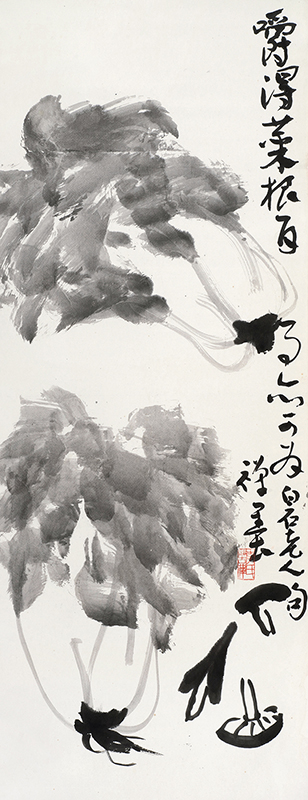 嚼得菜根百事亦可为白石老人句